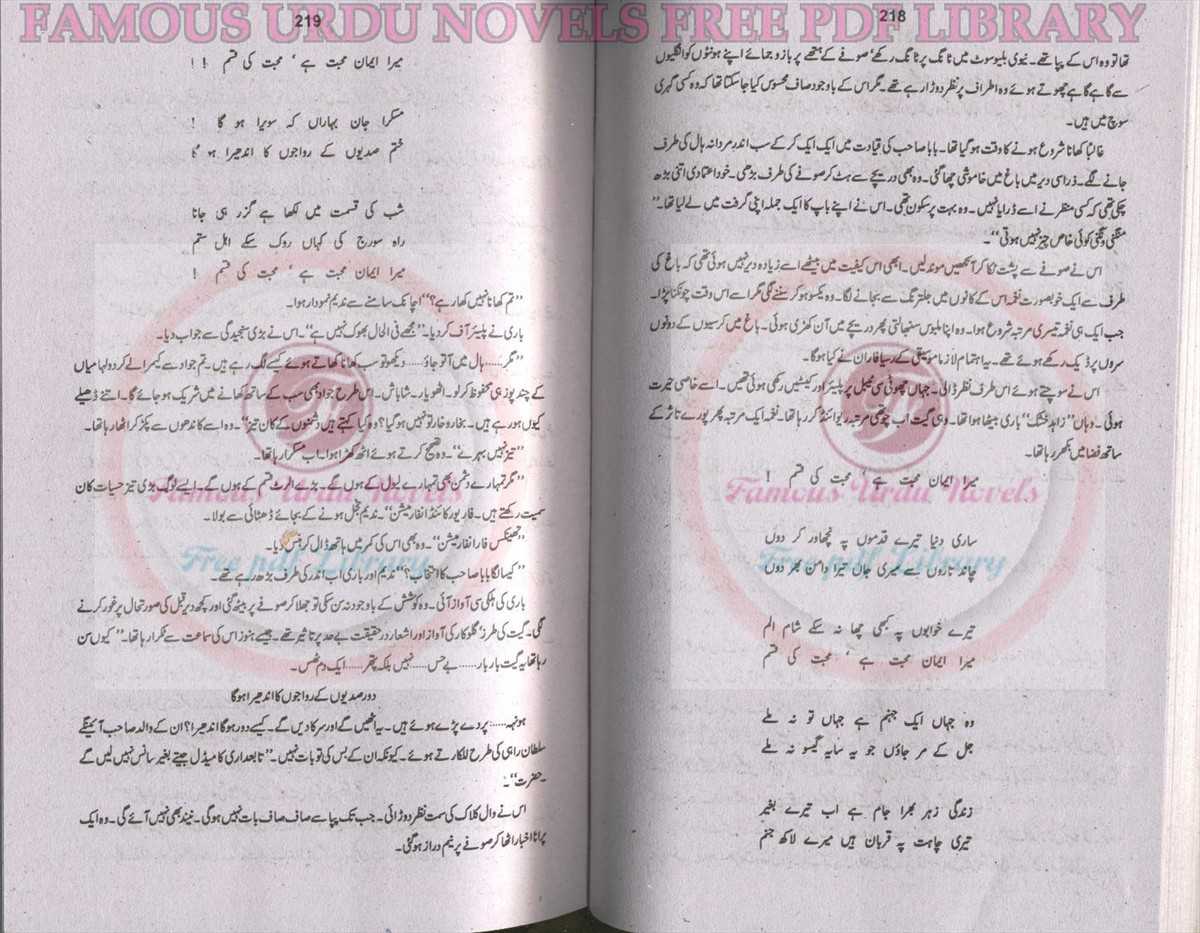 FAMOUS URDU NOVELS FREE PDF LIBRARY
218
تھا تو وہ اس کے پپا تھے۔ نیوی بلیو سوٹ میں ٹانگ پر ٹانگ رکھے' صوفے کے ہتھے پر بازو جمائے اپنے ہونٹوں کو انگلیوں
سے گاہے گاہے چھوتے ہوئے وہ اطراف پر نظر دوڑا رہے تھے۔ مگر اس کے باوجود صاف محسوس کیا جا سکتا تھا کہ وہ کسی گہری
سوچ میں ہیں۔
غالباً کھانا شروع ہونے کا وقت ہو گیا تھا۔ بابا صاحب کی قیادت میں ایک ایک کر کے سب اندر مردانہ ہال کی طرف
جانے لگے۔ ذرا سی دیر میں باغ میں خاموشی چھا گئی۔ وہ بھی دریچے سے ہٹ کر صوفے کی طرف بڑھی۔ خود اعتمادی اتنی بڑھ
چکی تھی کہ کسی منظر نے اسے ڈرایا نہیں۔ وہ بہت پرسکون تھی۔ اس نے اپنے باپ کا ایک جملہ اپنی گرفت میں لے لیا تھا۔ ''
منگنی ونگنی کوئی خاص چیز نہیں ہوتی''۔
اس نے صوفے سے پشت ٹکا کر آنکھیں موند لیں۔ ابھی اس کیفیت میں بیٹھے اسے زیادہ دیر نہیں ہوئی تھی کہ باغ کی
طرف سے ایک خوبصورت نغمہ اس کے کانوں میں جلترنگ سے بجانے لگا۔ وہ یکسو ہو کر سننے لگی مگر اسے اس وقت چونکنا پڑا۔
جب ایک ہی نغمہ تیسری مرتبہ شروع ہوا۔ وہ اپنا ملبوس سنبھالتی پھر دریچے میں آن کھڑی ہوئی۔ باغ میں کرسیوں کے دونوں
سروں پر ڈیک رکھے ہوئے تھے۔ یہ اہتمام لازماً موسیقی کے رسیا فاران نے کیا ہوگا۔
اس نے سوچتے ہوئے اس طرف نظر ڈالی۔ جہاں چھوٹی سی ٹیبل پر پلیئر اور کیسٹیں رکھی ہوئی تھیں۔ اسے خاصی حیرت
ہوئی۔ وہاں ''زاہد خشک'' باری بیٹھا ہوا تھا۔ وہی گیت اب چوتھی مرتبہ ریوائنڈ کر رہا تھا۔ نغمہ ایک مرتبہ پھر پورے تاثر کے
ساتھ فضا میں بکھر رہا تھا۔
میرا ایمان محبت ہے ' محبت کی قسم !
ساری دنیا تیرے قدموں پہ نچھاور کر دوں
چاند تاروں سے میری جاں تیرا دامن بھر دوں
تیرے خوابوں پہ کبھی چھا نہ سکے شام الم
میرا ایمان محبت ہے ' محبت کی قسم
وہ جہاں ایک جہنم ہے جہاں تو نہ ملے
جل کے مر جاؤں جو یہ سایہ گیسو نہ ملے
زندگی زہر بھرا جام ہے اب تیرے بغیر
تیری چاہت پہ قربان ہیں میرے لاکھ جنم
Famous Urdu Novels
Free pdf Library
219
میرا ایمان محبت ہے ' محبت کی قسم ! !
مسکرا جان بہاراں کہ سویرا ہو گا !
ختم صدیوں کے رواجوں کا اندھیرا ہو گا
شب کی قسمت میں لکھا ہے گزر ہی جانا
راہ سورج کی کہاں روک سکے اہل ستم
میرا ایمان محبت ہے ' محبت کی قسم !
''تم کھانا نہیں کھا رہے؟'' اچانک سامنے سے ندیم نمودار ہوا۔
باری نے پلیئر آف کر دیا۔ ''مجھے فی الحال بھوک نہیں ہے''۔ اس نے بڑی سنجیدگی سے جواب دیا۔
''مگر.... ہال میں آ تو جاؤ.... دیکھو تو سب کھانا کھاتے ہوئے کیسے لگ رہے ہیں۔ تم جواد سے کیمرا لے کر دولہا میاں
کے چند پوز ہی محفوظ کر لو۔ اٹھو یار۔ شاباش۔ اس طرح جواد بھی سب کے ساتھ کھانے میں شریک ہو جائے گا۔ اتنے ڈھیلے
کیوں ہو رہے ہیں۔ بخار وخار تو نہیں ہو گیا؟ وہ کیا کہتے ہیں دشمنوں کے کان تیز''۔ وہ اسے کاندھوں سے پکڑ کر اٹھا رہا تھا۔
''تیز نہیں بہرے''۔ وہ تصحیح کرتے ہوئے اٹھ کھڑا ہوا۔ اب مسکرا رہا تھا۔
''مگر تمہارے دشمن بھی تمہارے لیول کے ہوں گے۔ بڑے الرٹ قسم کے ہوں گے۔ ایسے لوگ بڑی تیز حسیات کان
سمیت رکھتے ہیں۔ فار یور کائنڈ انفارمیشن''۔ ندیم خجل ہونے کے بجائے ڈھٹائی سے بولا۔
''تھینکس فار انفارمیشن''۔ وہ بھی اس کی کمر میں ہاتھ ڈال کر ہنس دیا۔
''کیسا لگا بابا صاحب کا انتخاب؟'' ندیم اور باری اب اندر کی طرف بڑھ رہے تھے۔
باری کی ہلکی سی آواز آئی۔ وہ کوشش کے باوجود نہ سن سکی تو جھلا کر صوفے پر بیٹھ گئی اور کچھ دیر قبل کی صورتحال پر غور کرنے
لگی۔ گیت کی طرز' گلوکار کی آواز اور اشعار در حقیقت بے حد پر تاثیر تھے۔ جیسے ہنوز اس کی سماعت سے ٹکرا رہا تھا۔ ''کیوں سن
رہا تھا یہ گیت بار بار..... بے حس..... نہیں بلکہ پتھر..... ایک دم ٹھس۔
دور صدیوں کے رواجوں کا اندھیرا ہوگا
ہونہہ..... پردے پڑے ہوئے ہیں۔ یہ اٹھیں گے اور سرکا دیں گے۔ کیسے دور ہوگا اندھیرا؟ ان کے والد صاحب آ ئینگے
سلطان راہی کی طرح للکارتے ہوئے۔ کیونکہ ان کے بس کی تو بات نہیں۔ ''تابعداری کا میڈل جیتے بغیر سانس نہیں لیں گے
حضرت''۔
اس نے وال کلاک کی سمت نظر دوڑائی۔ جب تک پپا سے صاف صاف بات نہیں ہوگی۔ نیند بھی نہیں آئے گی۔ وہ ایک
پرانا اخبار اٹھا کر صوفے پر نیم دراز ہوگئی۔
Famous Urdu Novels
Free pdf Library